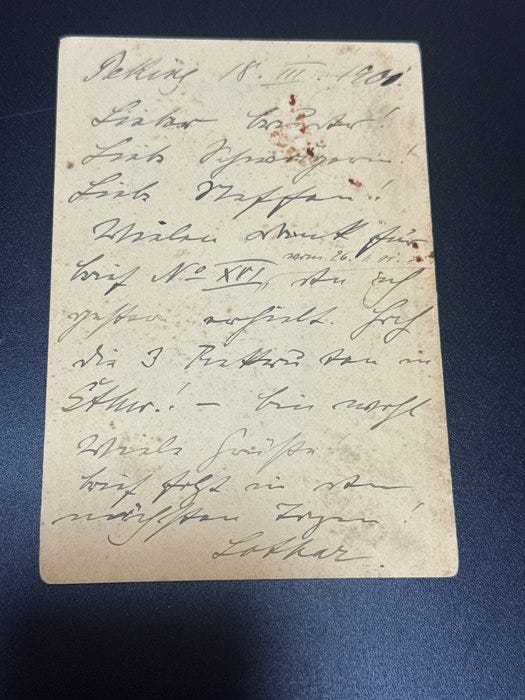 Peking 18. III. 1901.
Lieber Bruder!
Liebe Schwägerin!
Liebe Neffen!
Vielen Dank für
Brief No XVI, vom 26. I. 01. den ich
gestern erhielt. Hoch
die 3 Rekruten in
Bin wohl
Viele Grüße!
Brief folgt in den
nächsten Tagen!
Lothar